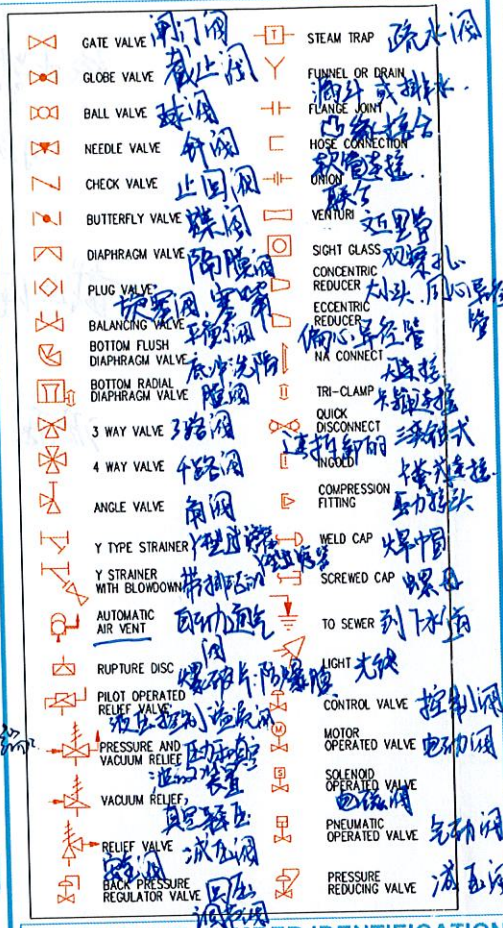 GATE VALVE 闸门阀
GLOBE VALVE 截止阀
BALL VALVE 球阀
NEEDLE VALVE 针阀
CHECK VALVE 止回阀
BUTTERFLY VALVE 蝶阀
DIAPHRAGM VALVE 隔膜阀
PLUG VALVE
BALANCING VALVE 平衡阀
BOTTOM FLUSH
DIAPHRAGM VALVE 底冲洗隔
BOTTOM RADIAL 膜阀
DIAPHRAGM VALVE
3 WAY VALVE 3路阀
4 WAY VALVE 4路阀
ANGLE VALVE 角阀
Y TYPE STRAINER
Y STRAINER
WITH BLOWDOWN
AUTOMATIC 自动通气
AIR VENT 阀
RUPTURE DISC 爆破片.防爆膜
PILOT OPERATED
RELIEF VALVE
液压控制溢流阀
PRESSURE AND
VACUUM RELIEF 压力和真空
装置
VACUUM RELIEF,
真空
RELIEF VALVE 减压阀
安全阀
BACK PRESSURE 回压
REGULATOR VALVE
调节阀
T
STEAM TRAP 疏水阀
FUNNEL OR DRAIN
漏斗或排水.
FLANGE JOINT
凸缘接合
HOSE CONNECTION
软管连接.
UNION
联合
VENTURI 文丘里管
SIGHT GLASS 观察孔
CONCENTRIC
REDUCER 大小头.同心异径
管
ECCENTRIC
REDUCER
偏心异径管
NA CONNECT
TRI-CLAMP 卡箍连接
QUICK
DISCONNECT
INGOLD
COMPRESSION
FITTING 压力接头
WELD CAP
SCREWED CAP 螺母
TO SEWER 到下水道
LIGHT
CONTROL VALVE 控制阀
M
MOTOR
OPERATED VALVE 电动阀
S
SOLENOID
OPERATED VALVE
电磁阀
PNEUMATIC
OPERATED VALVE 气动阀
PRESSURE
REDUCING VALVE 减压阀
IDENTIFICATION